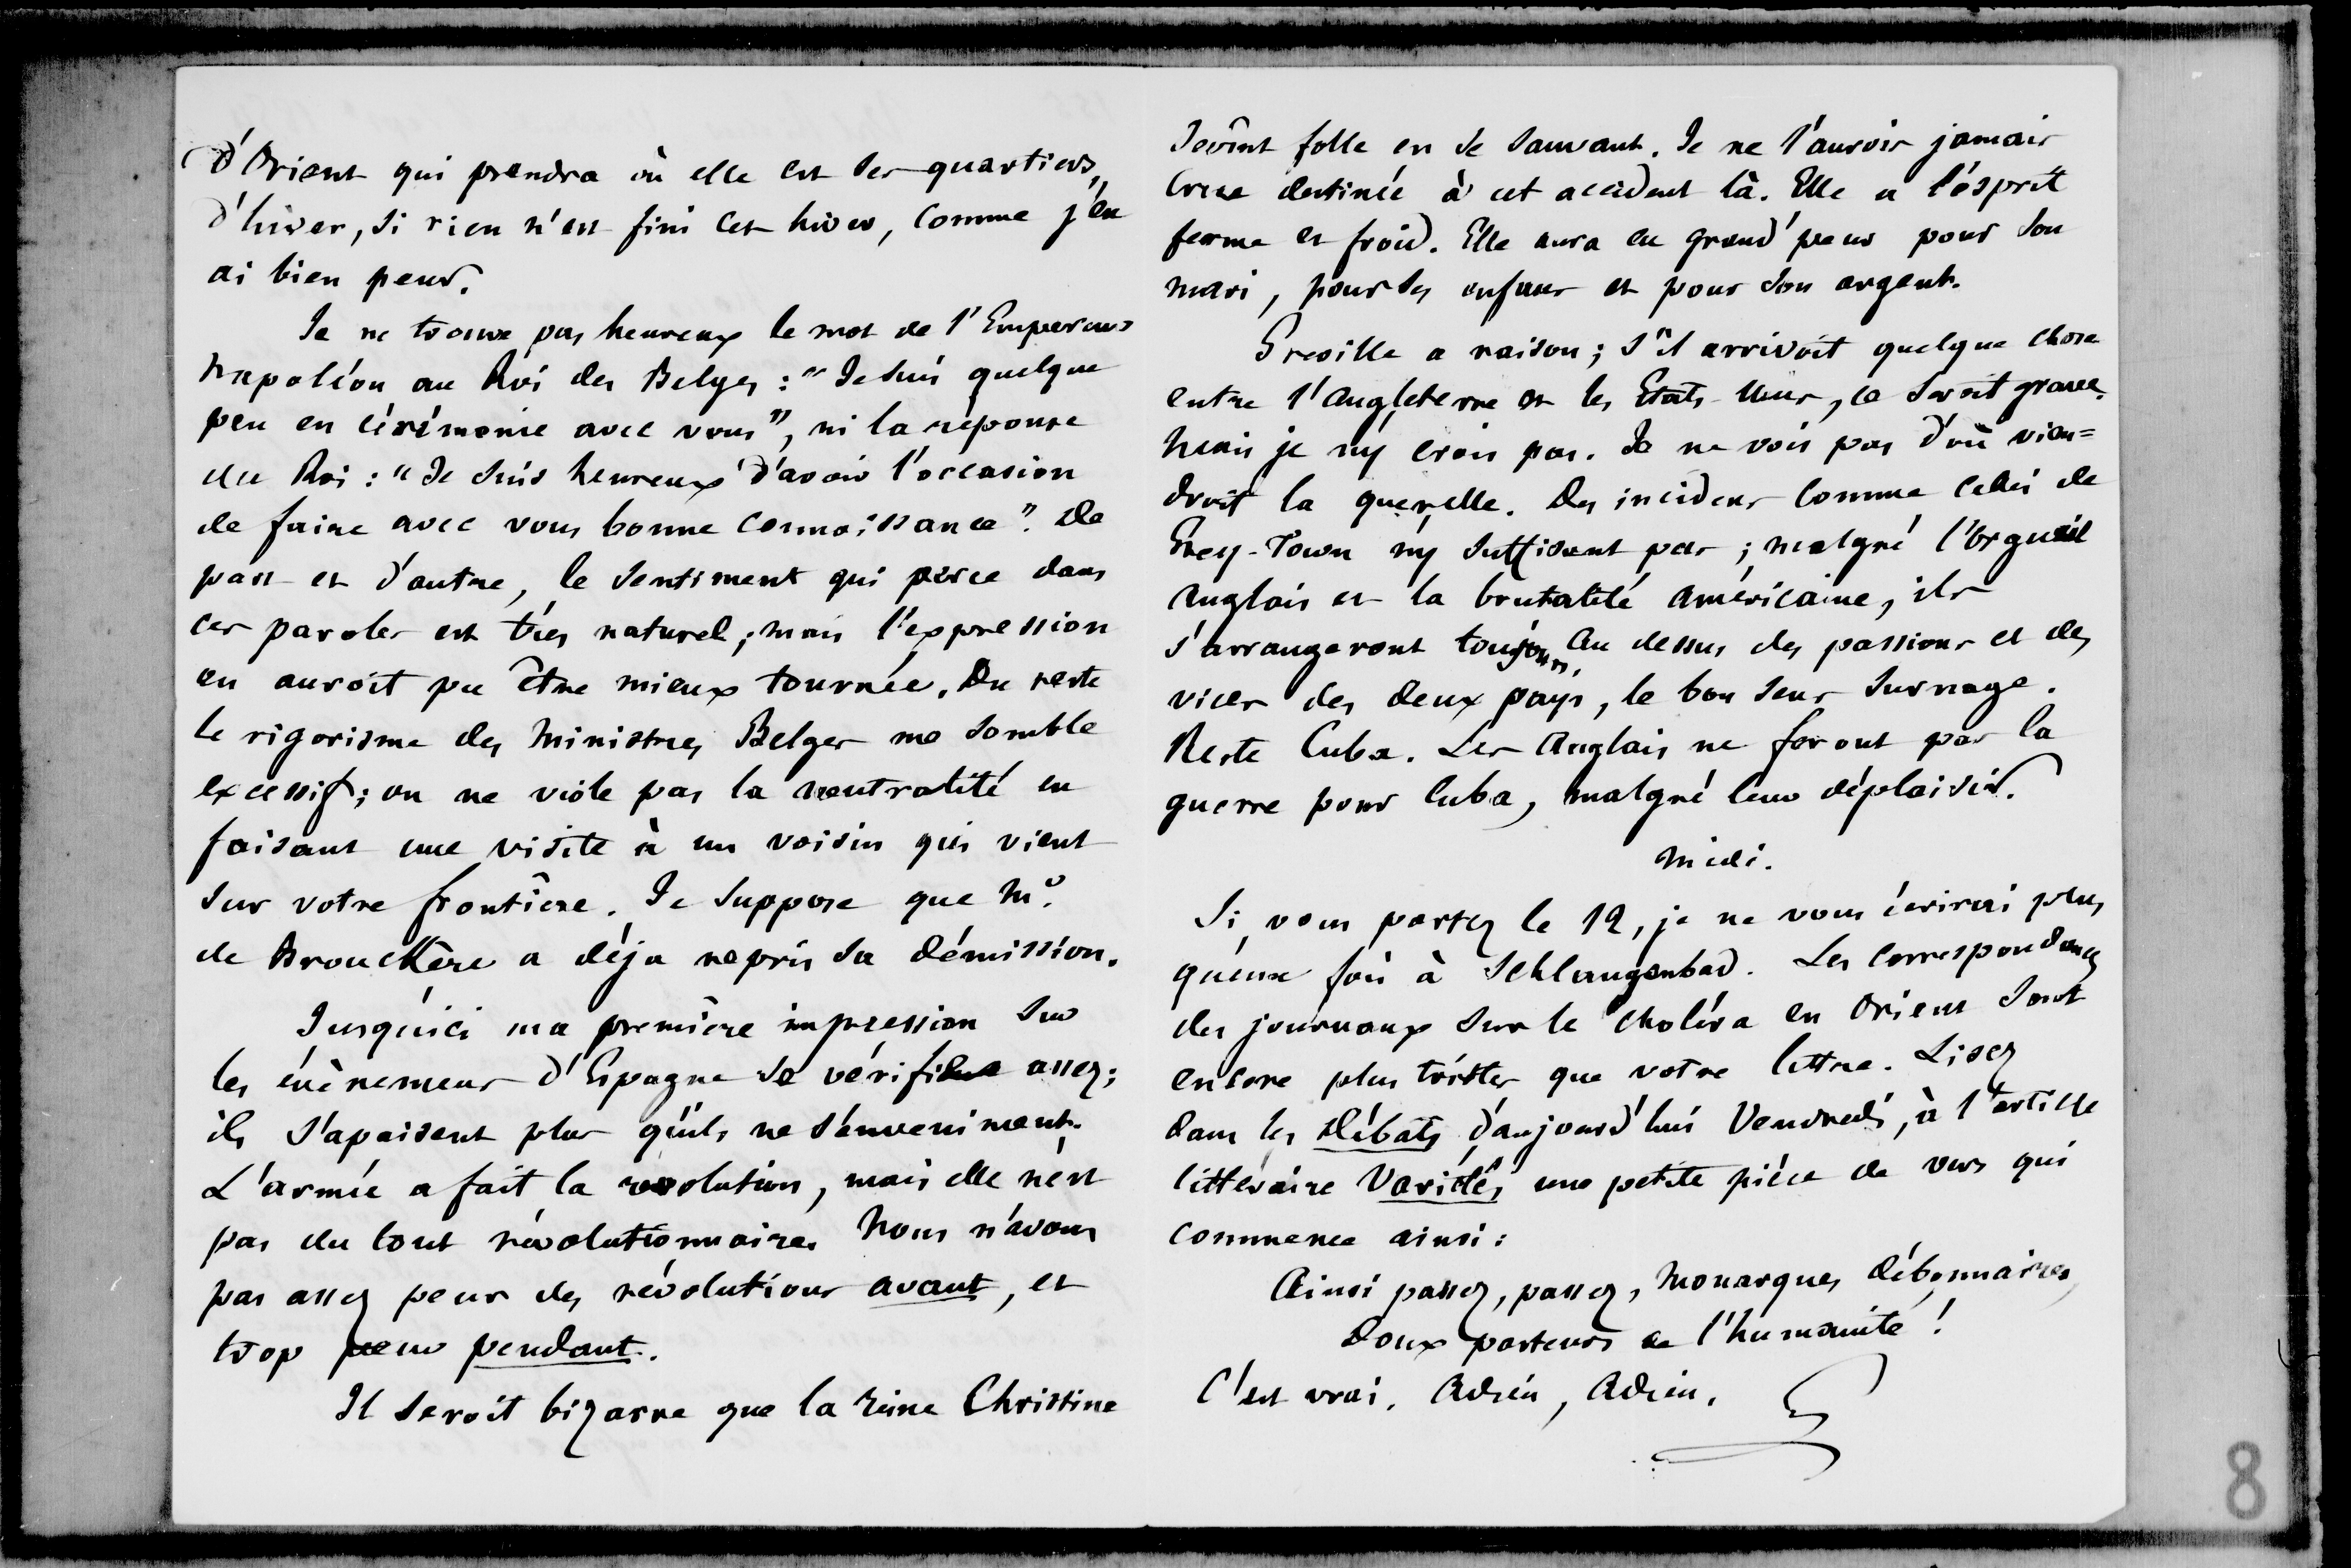 d'Orient qui prendra où elle est ses quartiers
d'hiver, si rien n'est fini cet hiver, comme j'en
ai bien peur.
Je ne trouve pas heureux le mot de l'Empereur
Napoléon au Roi des Belges : "Je suis quelque
peu en cérémonie avec vous", ni la réponse
du Roi : "Je suis heureux d'avoir l'occasion
de faire avec vous bonne connoissance". De
part et d'autre, le sentiment qui perce dans
ces paroles est très naturel ; mais l'expression
en auroit pu être mieux tournée. Du reste
le rigorisme des ministres Belges me semble
excessif ; on ne viole pas la neutralité en
faisant une visite à un voisin qui vient
sur votre frontière. Je suppose que Mr.
de Brouckère a déja repris sa démission.
Jusqu'ici ma première impression sur
les évènemens d'Espagne se vérifie assez ;
ils s'apaisent plus qu'ils ne s'enveniment.
L'armée a fait la révolution, mais elle n'est
pas du tout révolutionnaire. Nous n'avons
pas assez peur des révolutions avant, et
trop peur pendant.
Il seroit bizarre que la reine Christine
devînt folle en se sauvant. Je ne l'aurois jamais
crue destinée à cet accident là. Elle a l'esprit
ferme et froid. Elle aura eu grand'peur pour son
mari, pour ses enfans et pour son argent.
Greville a raison ; s'il arrivoit quelque chose
entre l'Angleterre et les Etats-Unis, ce seroit grave.
Mais je n'y crois pas. Je ne vois pas d'où vien=
droit la querelle. Des incidens comme celui de
Grey-Town n'y suffisent pas ; malgré l'orgueil
Anglais et la brutalité américaine, ils
s'arrangeront toujours. Au dessus des passions et des
vices des deux pays, le bon sens surnage.
Reste Cuba. Les Anglais ne feront pas la
guerre pour Cuba, malgré leur déplaisir.
Midi.
Si vous partez le 12, je ne vous écrirai plus
qu'une fois à Schlangenbad. Les correspondances
des journaux sur le choléra en Orient sont
encore plus tristes que votre lettre. Lisez
dans les Débats d'aujourd'hui Vendredi, à l'article
littéraire Variétés une petite pièce de vers qui
commence ainsi :
Ainsi passez, passez, monarques débonnaires,
Doux pasteurs de l'humanité !
C'est vrai. Adieu, Adieu.
8